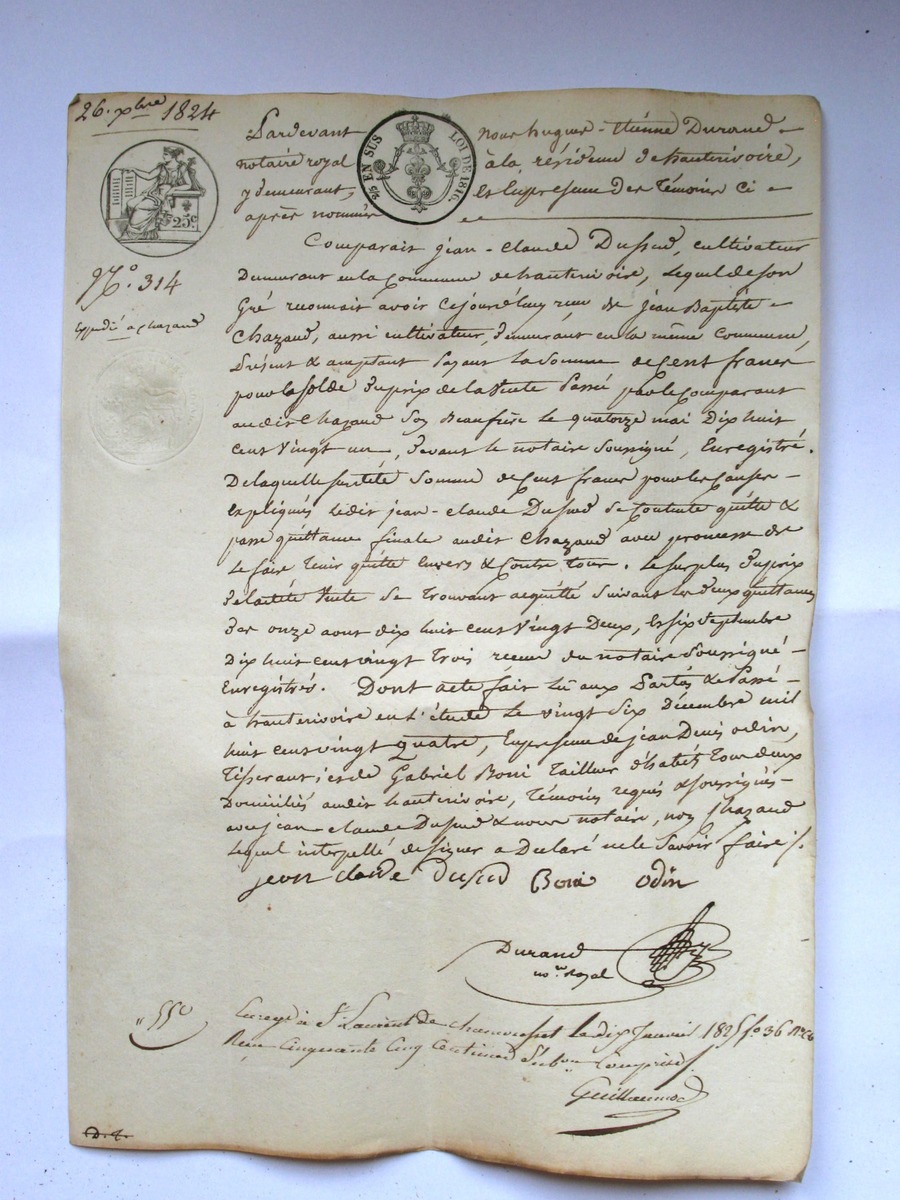 26. xbre 1824
Pardevant nous hugues - Etienne Durand -
notaire royal à la résidence d'hauterivoire,
y demeurant, et En presence Des témoins ci -
après nommés
2/5 EN SUS LOI DE 1816.
25c
N.° 314
Expedié a chazaud
Comparait jean - claude Dussud, cultivateur
Demeurant en la Commune de hauterivoire, Lequel de son
Gré reconnait avoir Cejourd'huy reçu de jean Baptiste -
Chazaud, aussi cultivateur, demeurant en la même Commune,
Présent & acceptant payant la Somme de Cent francs
pour la solde du prix de la Vente Passée par le Comparant
audit Chazaud Son Beaufrère le quatorze mai Dix huit
Cent Vingt un, devant le notaire Soussigné, Enregistré.
De laquelle susditte Somme de Cent francs pour les Causes -
Expliqués ledit jean - claude Dussud Se Contente quitte &
passe quittance finale audit Chazaud avec promesse de
Le faire Tenir quitte Envers & Contre Tous. Le Surplus du prix
De laditte Vente Se Trouvant acquitté Suivant les deux quittances
Des onze aout dix huit cent Vingt Deux, et six Septembre
Dix huit cent vingt Trois recues du notaire Soussigné -
Enregistrés. Dont acte fait lu aux Parties & Passé -
à hauterivoire en l'étude Le vingt Six Décembre mil
huit cent vingt quatre, En presence de jean Denis odin,
Tisserant, et de Gabriel Boni Tailleur d'habits Tous deux
Domiciliés audit hauterivoire, Témoins requis & soussignés -
avec jean - claude Dussud & nous notaire, non Chazaud
Lequel interpellé de signer a Declaré ne le Savoir faire ./.
jean claude dusud Boni odin
Durand
no.re Royal
55c Enregé à St Laurent de chamousset Le dix Janvier 1825 f.o 36
Reçu Cinquante Cinq Centimes Subon Comprise.
Guillaumod
D. 4.